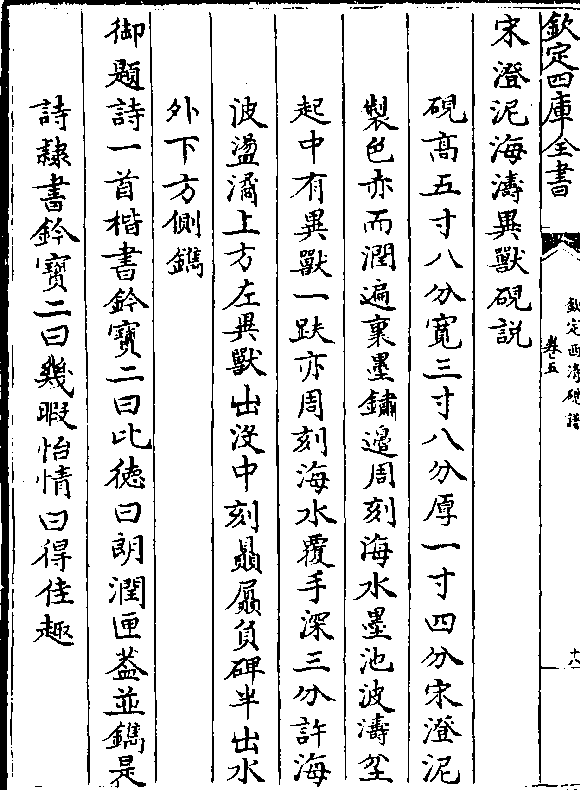 欽定四庫全書
欽定西清硯譜
卷五
十八
宋澄泥海濤異獸硯説
硯髙五寸八分寛三寸八分厚一寸四分宋澄泥
製色赤而潤遍裹墨鏽邊周刻海水墨池波濤坌
起中有異獸一趺亦周刻海水覆手深三分許海
波盪潏上方左異獸出没中刻贔屭負碑半出水
外下方側鐫
御題詩一首楷書鈐寳二曰比徳曰朗潤匣葢並鐫是
詩隷書鈐寳二曰㡬暇怡情曰得佳趣